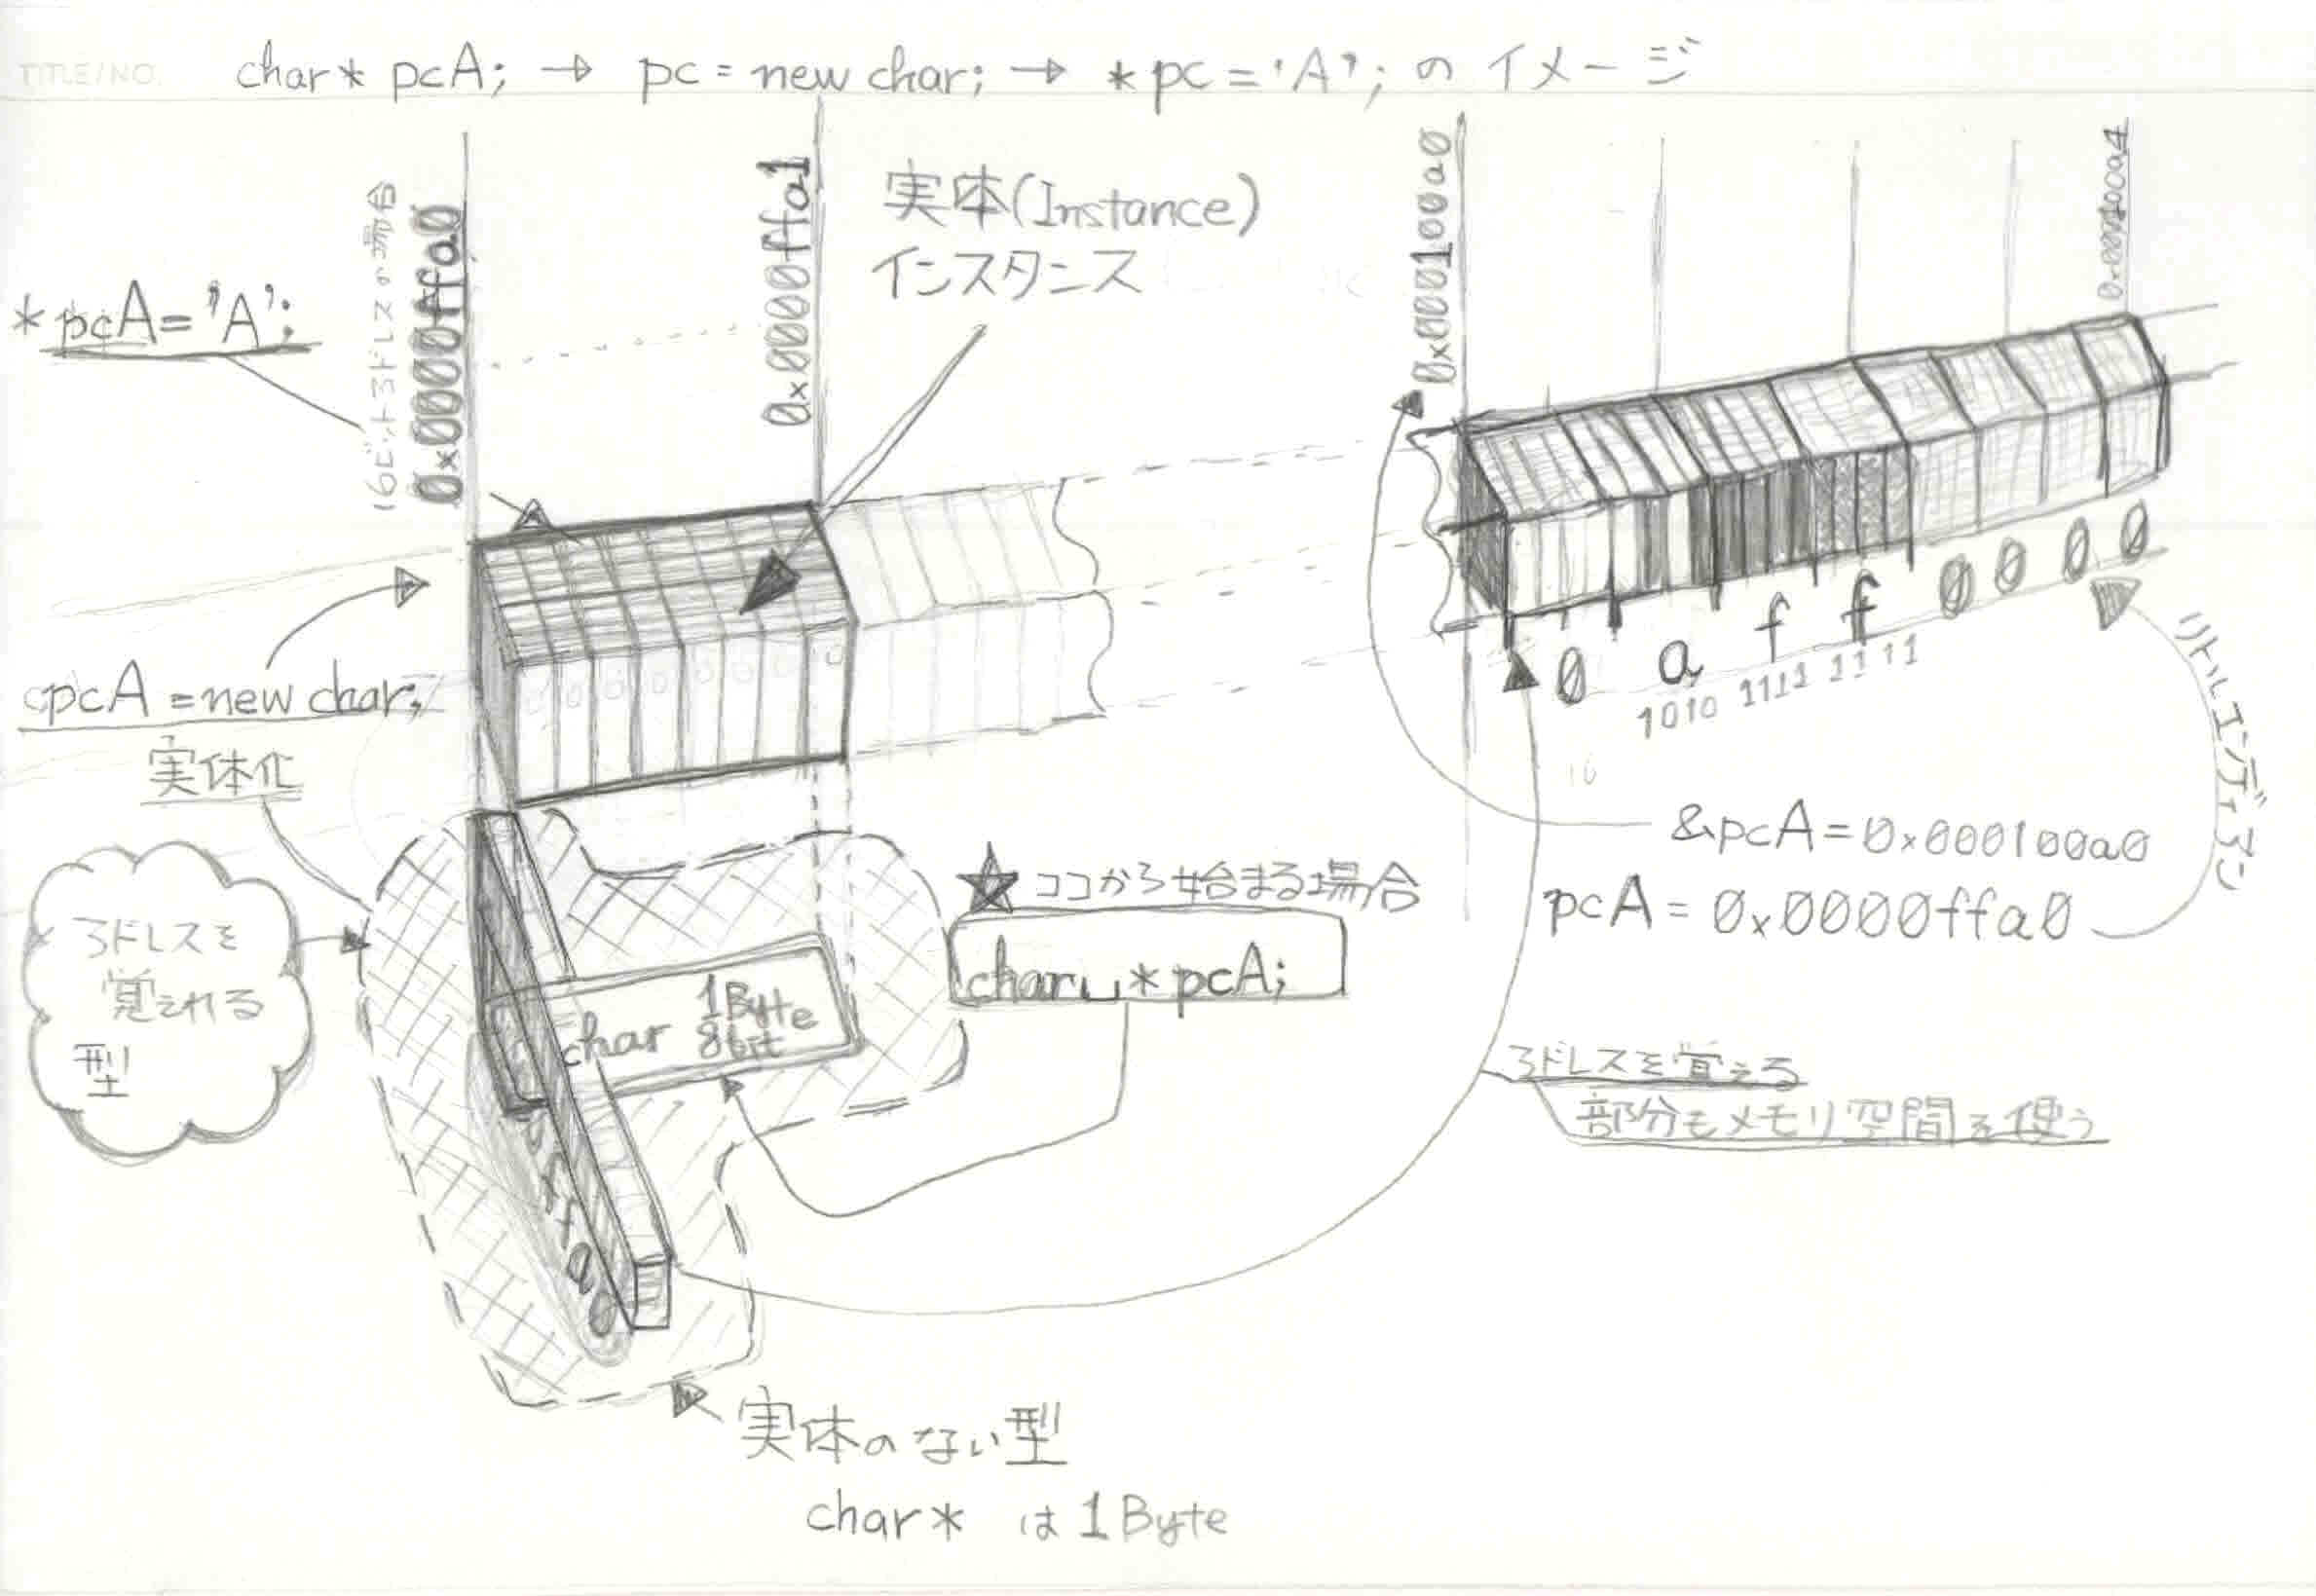 TITLE/NO.
char* pcA; → pc = new char; → *pc = 'A'; の イメージ
16ビットアドレスの場合
0x0000ffa0
0x0000ffa1
実体(Instance)
インスタンス
0x000100a0
0x000100a4
*pcA = 'A';
pcA = new char;
実体化
0 a f f 0 0 0 0
1010 1111 1111
リトルエンディアン
&pcA = 0x000100a0
pcA = 0x0000ffa0
★ココから始まる場合
char␣*pcA;
アドレスを
覚えれる
型
char 1Byte
8bit
アドレスを覚える
部分もメモリ空間を使う
実体のない型
char* は 1Byte